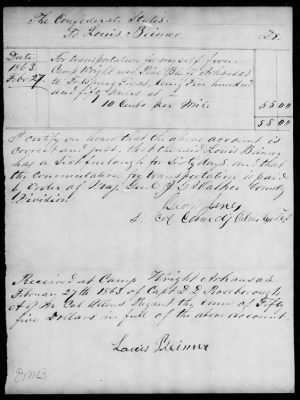 The Confederate States.
To Louis Beimer Dr.
Date For transportation for myself from
1863. Camp Wright near Pine Bluff Arkansas
Feb 27 to Texas, being five hundred
and fifty miles at
10 Cents per Mile 55 00
55 00
I certify on honor that the above account is
correct and just. that the said Louis Beimer
has a Sick furlough for Sixty days and that
the commutation for transportation is paid
by Order of Maj. Genl J. G. Walker Comdg
Division.
Received at Camp Wright Arkansas
Februar 27th 1863 of Capt D. D. Roseborough
A Q M Col Allens Regment the sum of Fifty
five Dollars in full of the above account.
Louis Beimer